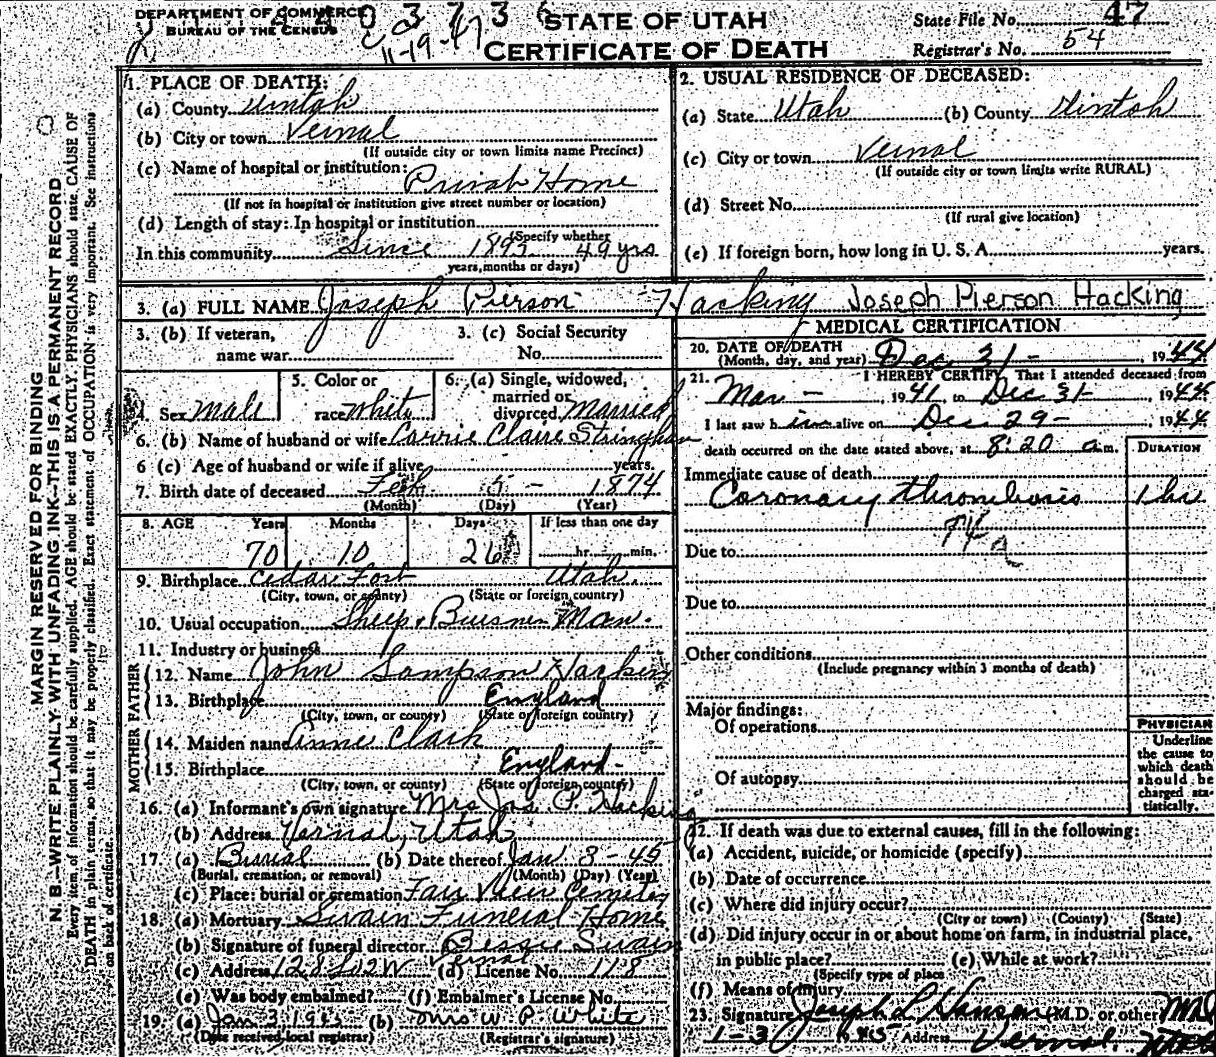 DEPARTMENT OF COMMERCE
BUREAU OF THE CENSUS
11-19-47
STATE OF UTAH
CERTIFICATE OF DEATH
State File No. 47
Registrar's No. 54
MARGIN RESERVED FOR BINDING
N. B.—WRITE PLAINLY, WITH UNFADING INK—THIS IS A PERMANENT RECORD
Every item of information should be carefully supplied. AGE should be stated EXACTLY. PHYSICIANS should state CAUSE OF
DEATH in plain terms, so that it may be properly classified. Exact statement of OCCUPATION is very important. See instructions
on back of certificate.
1. PLACE OF DEATH:
(a) County Uintah
(b) City or town Vernal
(If outside city or town limits name Precinct)
(c) Name of hospital or institution:
Privat Home
(If not in hospital or institution give street number or location)
(d) Length of stay: In hospital or institution
(Specify whether
In this community Since 1895 49 yrs
years, months or days)
2. USUAL RESIDENCE OF DECEASED:
(a) State Utah (b) County Uintah
(c) City or town Vernal
(If outside city or town limits write RURAL)
(d) Street No.
(If rural give location)
(e) If foreign born, how long in U. S. A. years.
3. (a) FULL NAME Joseph Pierson Hacking Joseph Pierson Hacking
3. (b) If veteran, name war
3. (c) Social Security No.
4. Sex Male
5. Color or race White
6. (a) Single, widowed, married or divorced Married
6. (b) Name of husband or wife Carrie Claire Stringham
6 (c) Age of husband or wife if alive years.
7. Birth date of deceased Feb 5 - 1874
(Month) (Day) (Year)
8. AGE Years Months Days If less than one day
70 10 26 hr. min.
9. Birthplace Cedar Fort Utah
(City, town, or county) (State or foreign country)
10. Usual occupation Sheep & Buisnes Man.
11. Industry or business
FATHER
12. Name John Sampson Hacking
13. Birthplace England
(City, town, or county) (State or foreign country)
MOTHER
14. Maiden name Anne Clark
15. Birthplace England
(City, town, or county) (State or foreign country)
16. (a) Informant's own signature Mrs Jos. P. Hacking
(b) Address Vernal, Utah
17. (a) Burial (b) Date thereof Jan 3 - 45
(Burial, cremation, or removal) (Month) (Day) (Year)
(c) Place: burial or cremation Fair View Cemetery
18. (a) Mortuary Swain Funeral Home
(b) Signature of funeral director Bessie Swain
(c) Address 128 So 2 W Vernal (d) License No. 118
(e) Was body embalmed? (f) Embalmer's License No.
19. (a) Jan 3, 1945 (b) Mrs W. P. White
(Date received local registrar) (Registrar's signature)
MEDICAL CERTIFICATION
20. DATE OF DEATH
(Month, day, and year) Dec 31 - , 1944
21. I HEREBY CERTIFY, That I attended deceased from
Mar - , 1941, to Dec 31 - , 1944
I last saw him alive on Dec 29 - , 1944
death occurred on the date stated above, at 8:20 a m.
DURATION
Immediate cause of death
Coronary thrombosis 1 hr
94a
Due to
Due to
Other conditions
(Include pregnancy within 3 months of death)
Major findings:
Of operations
Of autopsy
PHYSICIAN
Underline
the cause to
which death
should be
charged sta-
tistically.
22. If death was due to external causes, fill in the following:
(a) Accident, suicide, or homicide (specify)
(b) Date of occurrence
(c) Where did injury occur?
(City or town) (County) (State)
(d) Did injury occur in or about home on farm, in industrial place,
in public place? (e) While at work?
(Specify type of place
(f) Means of injury
23. Signature Joseph L. Hansen (M.D. or other) MD
1-3 1945 Address Vernal Utah